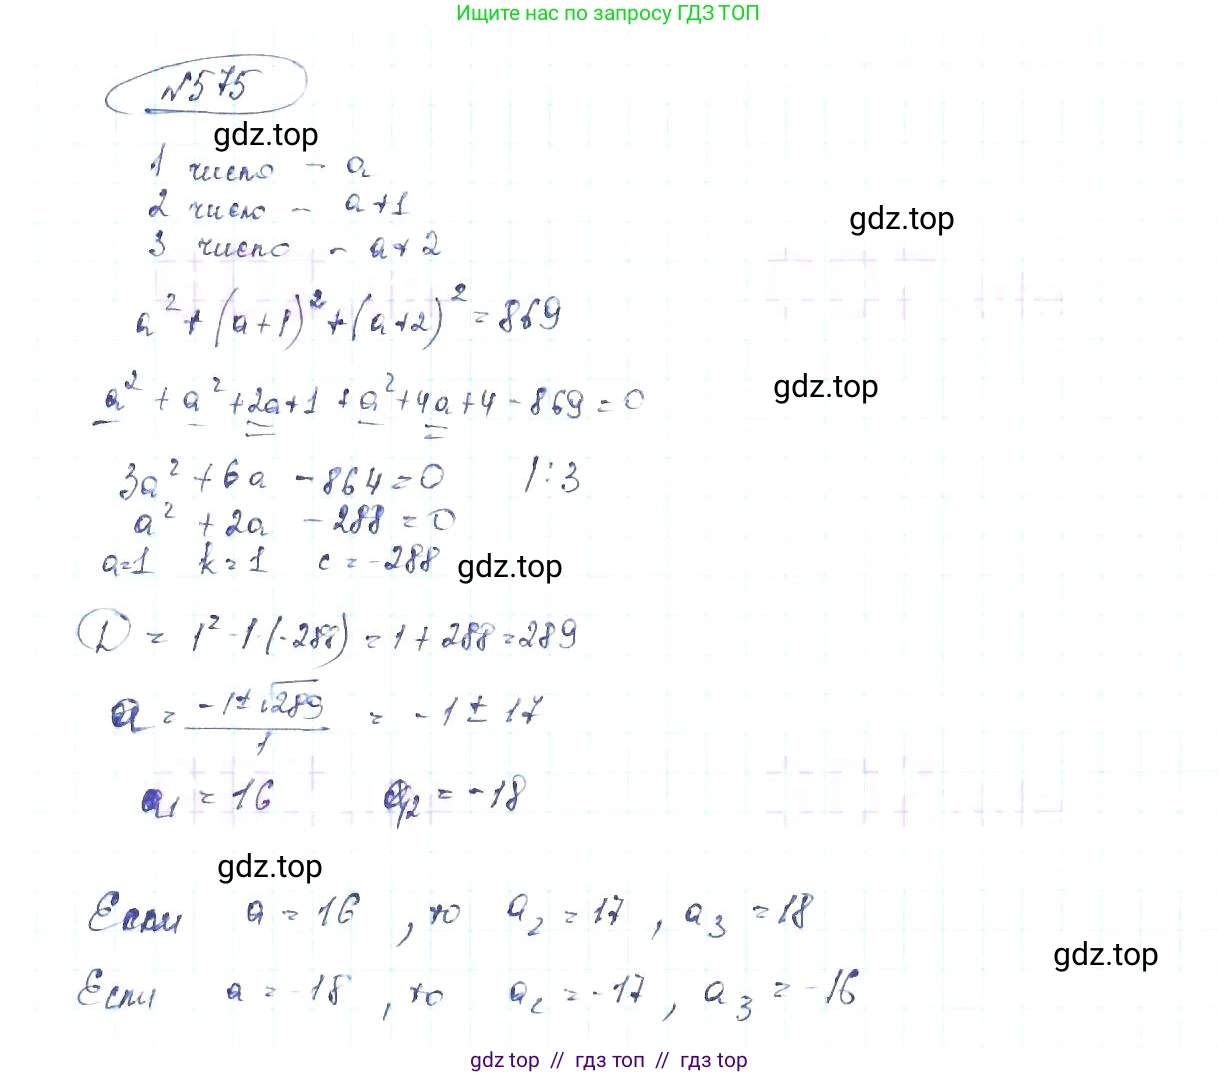 Ищите нас по запросу ГДЗ ТОП
№575
gdz.top
1 число - a
2 число - a+1
gdz.top
3 число - a+2
a² + (a+1)² + (a+2)² = 869
gdz.top
a² + a² + 2a + 1 + a² + 4a + 4 - 869 = 0
3a² + 6a - 864 = 0 | : 3
a² + 2a - 288 = 0
a=1 k=1 c=-288
gdz.top
D = 1² - 1·(-288) = 1 + 288 = 289
a = (-1±√289)/1 = -1 ± 17
a₁ = 16 a₂ = -18
gdz.top
Если a = 16, то a₂ = 17, a₃ = 18
gdz.top
Если a = -18, то a₂ = -17, a₃ = -16
gdz top // гдз топ // гдз top